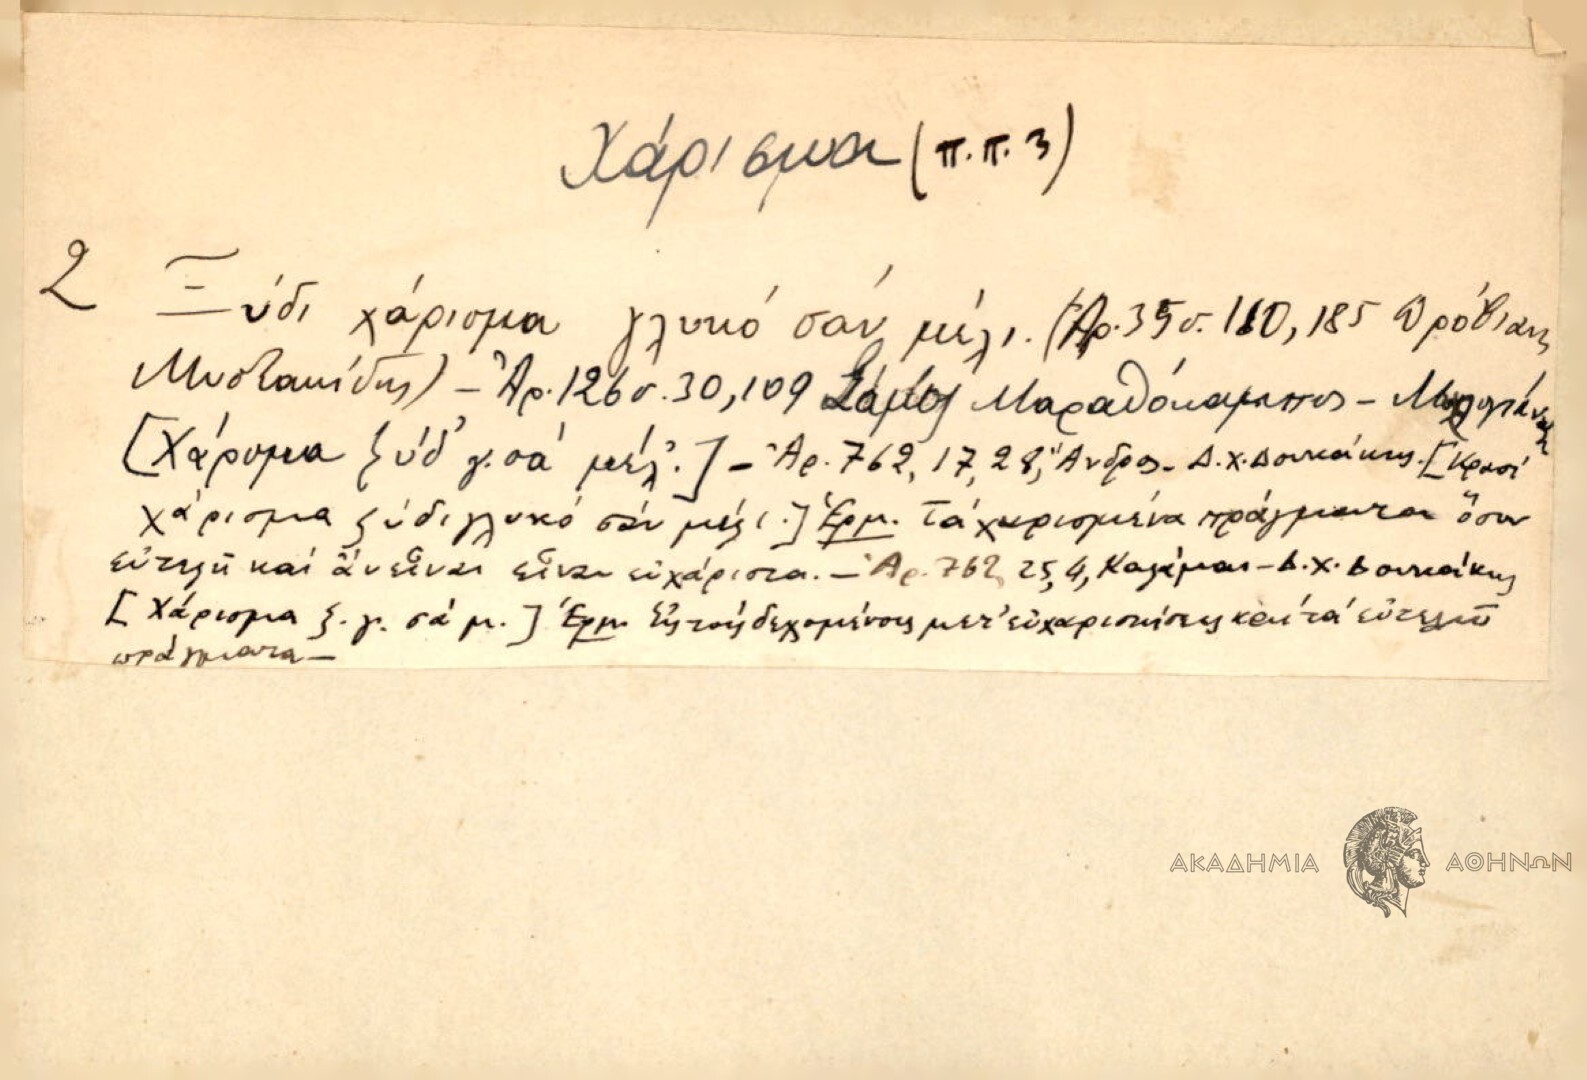 Χάρισμα (π.π. 3)
2 Ξύδι χάρισμα γλυκό σάν μέλι. (Ἀρ. 35 σ. 110, 185 Δρόβιανη
Μυστακίδης) – Ἀρ. 126 σ. 30, 109 Σάμος Μαραθόκαμπος –
[Χάρ'σμα ξύδ' γ. σά μέλ'.] – Ἀρ. 762, 17, 28, Ἄνδρος – Δ. Χ. Δουκάκης. [Κρασί
χάρισμα ξύδι γλυκό σάν μέλι.] Ἑρμ. Τά χαρισμένα πράγματα ὅσον
εὐτελῆ καί ἄν εἶναι εἶναι εὐχάριστα. – Ἀρ. 762, 25, 4, Καλάμαι – Δ. Χ. Δουκάκης
[Χάρισμα ξ. γ. σά μ.] Ἑρμ. Εἰς τούς δεχομένους μετ' εὐχαριστήσεως καί τά εὐτελῆ
πράγματα –
ΑΚΑΔΗΜΙΑ ΑΘΗΝΩΝ